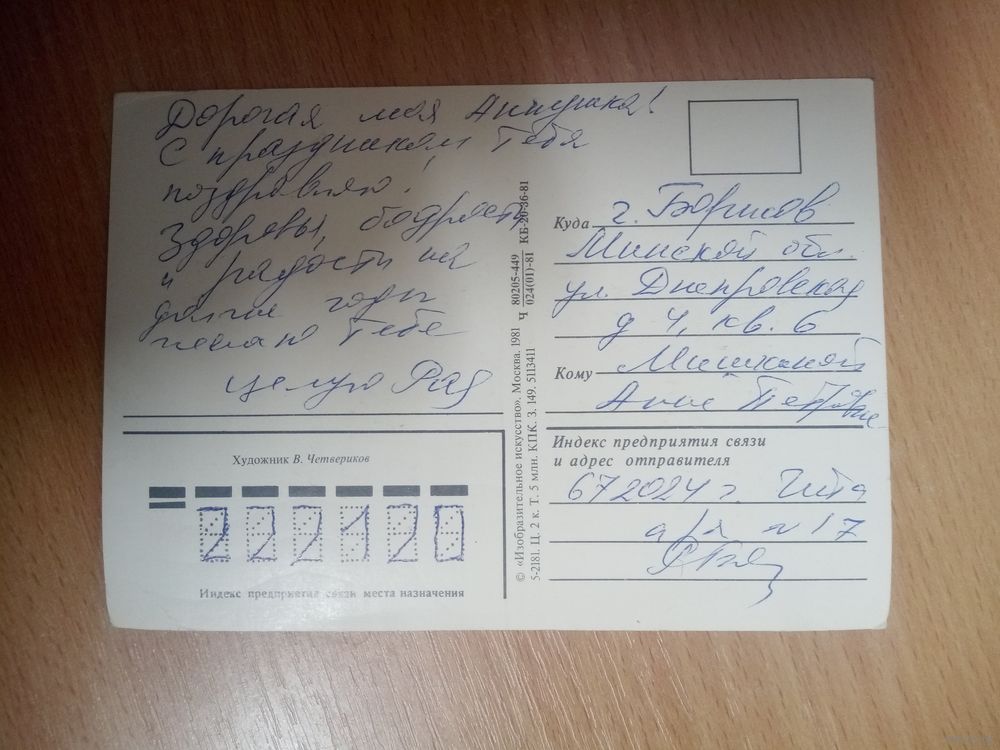 Дорогая моя Аннушка!
С праздником Тебя
поздравляю!
Здоровья, бодрости
и радости на
долгие годы
желаю Тебе
Целую Рая
Художник В. Четвериков
Индекс предприятия связи места назначения
222120
© «Изобразительное искусство». Москва. 1981
5-2181. Ц. 2 к. Т. 5 млн. КПК. З. 149. 5113411
Ч 80205-449 КБ-20-36-81
024(01)-81
Куда г. Борисов
Минской обл.
ул. Днепровская
д 4, кв. 6
Кому
Анне Петровне
Индекс предприятия связи
и адрес отправителя
672024 г. Чита
а/я N 17